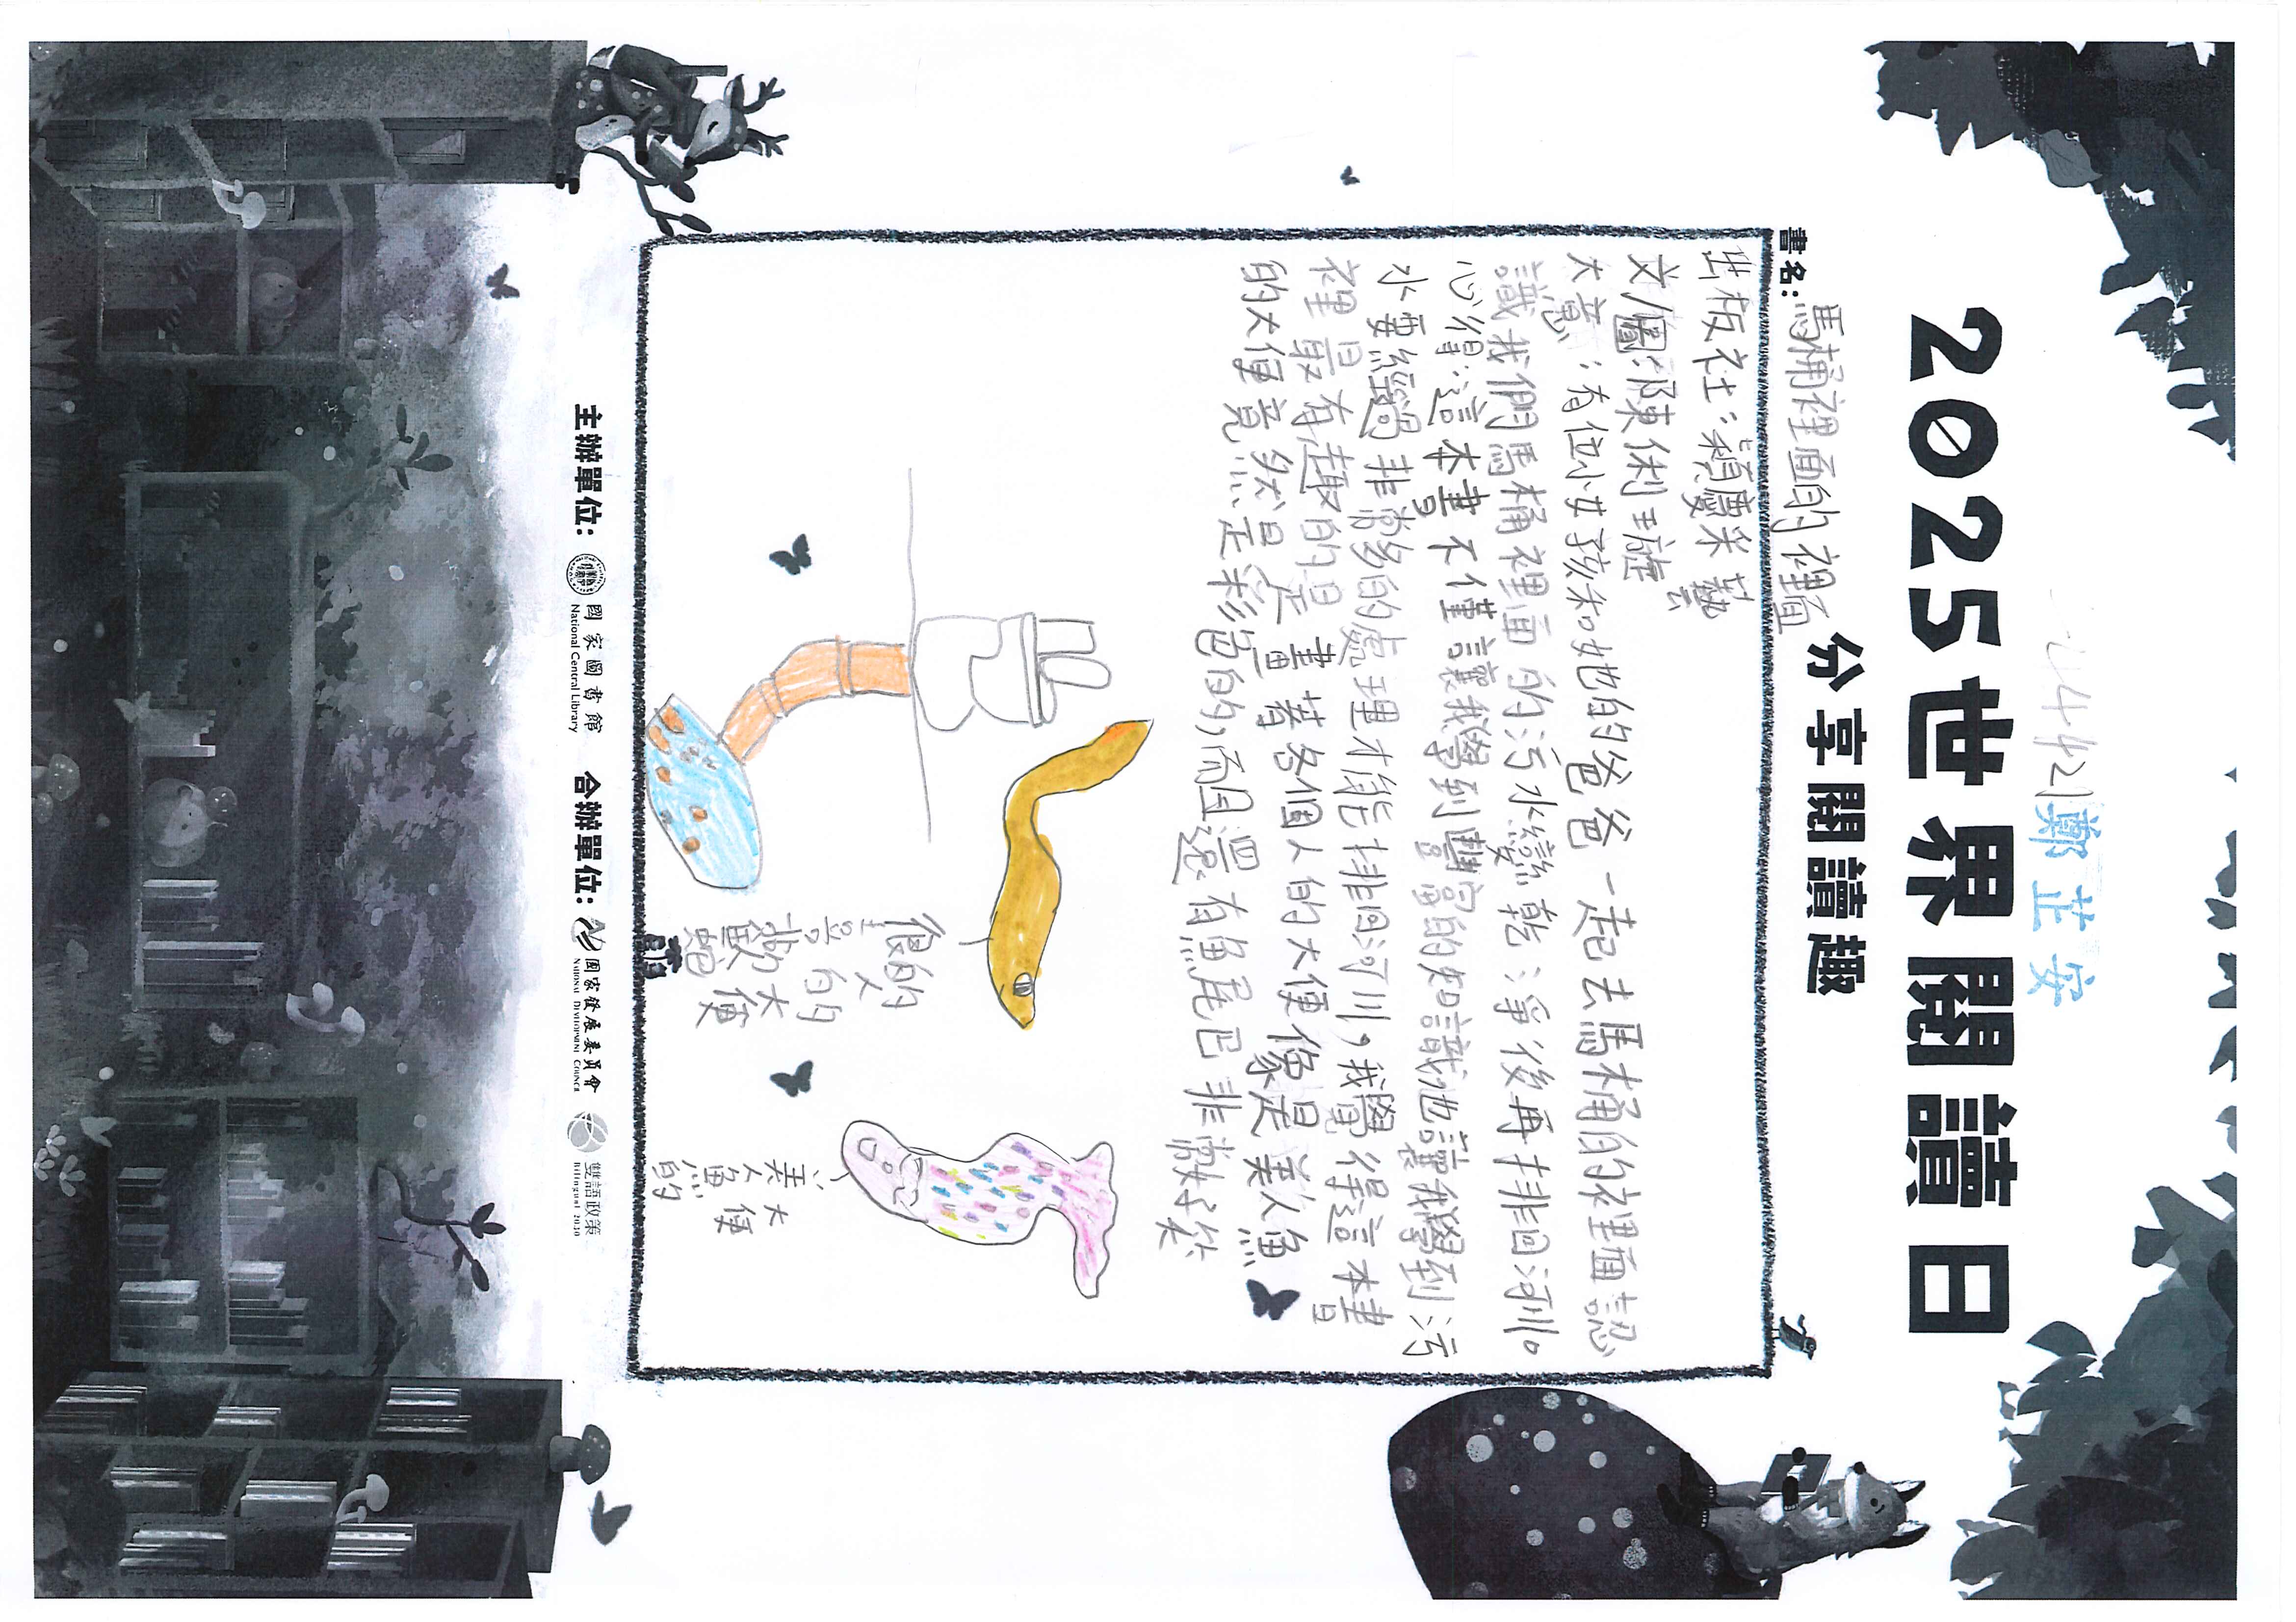 鄭芷安
2025世界閱讀日
分享閱讀趣
書名：馬桶裡面的裡面
出板社：穎慶采藝
文/圖：陳俐琁
大意：有位小女孩和她的爸爸一起去馬桶的裡面認
識我們馬桶裡面的污水變乾淨後再排回河川。
心得：這本書不僅讓我學到豐富的知識也讓我學到污
水要經過非常多的處理才能排回河川，我覺得這本書
裡最有趣的是畫著各個人的大便像是美人魚
的大便竟然是彩色的，而且還有魚尾巴非常好笑
很
的人
自的
大便
美人魚的
大便
主辦單位：
國家圖書館
National Central Library
合辦單位：
國家發展委員會
NATIONAL DEVELOPMENT COUNCIL
雙語政策
Bilingual 2030